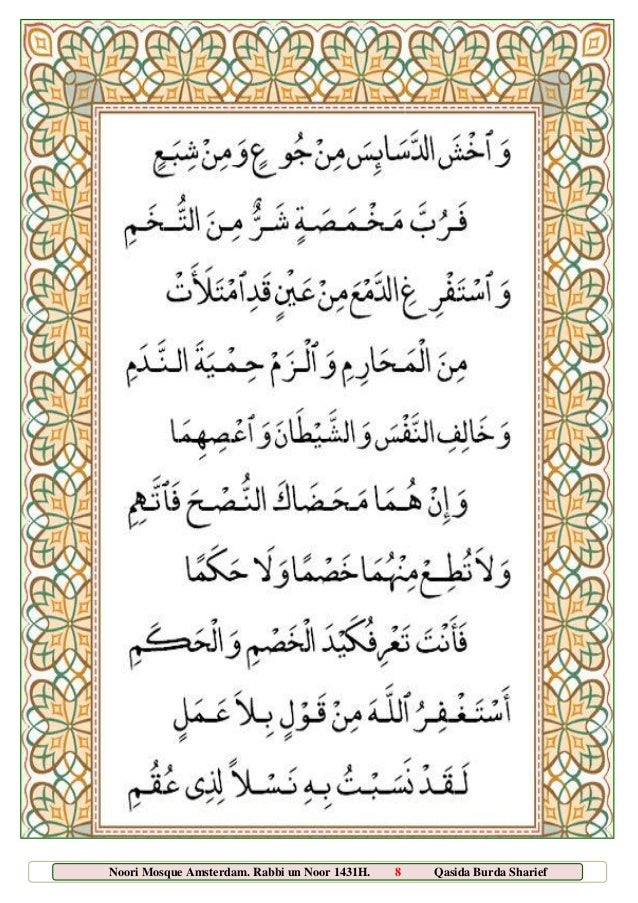 وَٱخْشَ الدَّسَائِسَ مِنْ جُوعٍ وَمِنْ شِبَعٍ
فَرُبَّ مَخْمَصَةٍ شَرٌّ مِنَ التُّخَمِ
وَٱسْتَفْرِغِ الدَّمْعَ مِنْ عَيْنٍ قَدِ ٱمْتَلَأَتْ
مِنَ الْمَحَارِمِ وَٱلْزَمْ حِمْيَةَ النَّدَمِ
وَخَالِفِ النَّفْسَ وَالشَّيْطَانَ وَٱعْصِهِمَا
وَإِنْ هُمَا مَحَضَاكَ النُّصْحَ فَٱتَّهِمِ
وَلَا تُطِعْ مِنْهُمَا خَصْمًا وَلَا حَكَمًا
فَأَنْتَ تَعْرِفُ كَيْدَ الْخَصْمِ وَالْحَكَمِ
أَسْتَغْفِرُ ٱللَّهَ مِنْ قَوْلٍ بِلَا عَمَلٍ
لَقَدْ نَسَبْتُ بِهِ نَسْلاً لِذِى عُقُمِ
Noori Mosque Amsterdam. Rabbi un Noor 1431H. 8 Qasida Burda Sharief